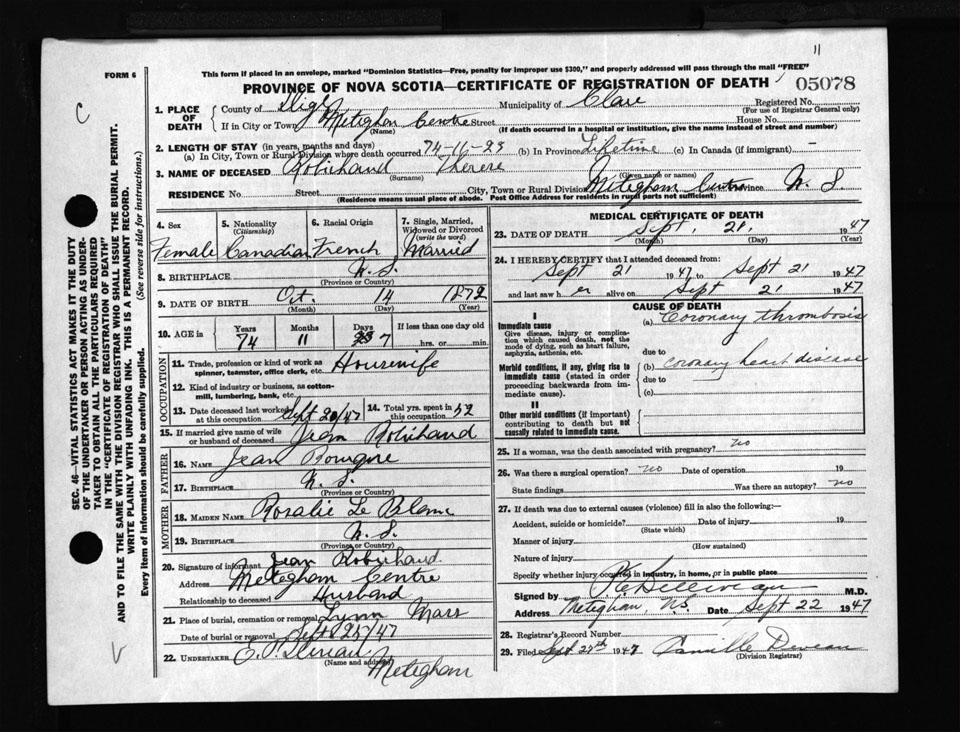 11
FORM 6
This form if placed in an envelope, marked "Dominion Statistics—Free, penalty for improper use $300," and properly addressed will pass through the mail "FREE"
PROVINCE OF NOVA SCOTIA—CERTIFICATE OF REGISTRATION OF DEATH
05078
C
SEC. 46—VITAL STATISTICS ACT MAKES IT THE DUTY
OF THE UNDERTAKER OR PERSON ACTING AS UNDER-
TAKER TO OBTAIN ALL THE PARTICULARS REQUIRED
IN THE "CERTIFICATE OF REGISTRATION OF DEATH"
AND TO FILE THE SAME WITH THE DIVISION REGISTRAR WHO SHALL ISSUE THE BURIAL PERMIT.
WRITE PLAINLY WITH UNFADING INK. THIS IS A PERMANENT RECORD.
Every item of information should be carefully supplied. (See reverse side for instructions.)
1. PLACE OF DEATH
County of Digby Municipality of Clare Registered No.
(For use of Registrar General only)
If in City or Town Meteghan Centre Street House No.
(Name) (If death occurred in a hospital or institution, give the name instead of street and number)
2. LENGTH OF STAY (in years, months and days)
(a) In City, Town or Rural Division where death occurred 74-11-23 (b) In Province Lifetime (c) In Canada (if immigrant) —
3. NAME OF DECEASED Robichaud Therese
(Surname) (Given name or names)
RESIDENCE No. Street City, Town or Rural Division Meteghan Centre Province N.S.
(Residence means usual place of abode. Post Office Address for residents in rural parts not sufficient)
4. Sex Female
5. Nationality (Citizenship) Canadian
6. Racial Origin French
7. Single, Married, Widowed or Divorced (write the word) Married
8. BIRTHPLACE N.S.
(Province or Country)
9. DATE OF BIRTH Oct. 14 1872
(Month) (Day) (Year)
10. AGE in Years 74 Months 11 Days 7 If less than one day old
hrs. or min.
OCCUPATION
11. Trade, profession or kind of work as spinner, teamster, office clerk, etc. Housewife
12. Kind of industry or business, as cotton-mill, lumbering, bank, etc.
13. Date deceased last worked at this occupation Sept 20/47 14. Total yrs. spent in this occupation 52
15. If married give name of wife or husband of deceased Jean Robichaud
FATHER
16. NAME Jean
17. BIRTHPLACE N.S.
(Province or Country)
MOTHER
18. MAIDEN NAME Rosalie Le Blanc
19. BIRTHPLACE N.S.
(Province or Country)
20. Signature of informant Jean Robichaud
Address Meteghan Centre
Relationship to deceased Husband
21. Place of burial, cremation or removal Lynn Mass
Date of burial or removal Sept 25/47
22. UNDERTAKER
(Name and address) Meteghan
MEDICAL CERTIFICATE OF DEATH
23. DATE OF DEATH Sept. 21, 1947
(Month) (Day) (Year)
24. I HEREBY CERTIFY that I attended deceased from:
Sept 21 1947 to Sept 21 1947
and last saw her alive on Sept 21 1947
CAUSE OF DEATH
I
Immediate cause (a) Coronary thrombosis
Give disease, injury or complication which caused death, not the mode of dying, such as heart failure, asphyxia, asthenia, etc.
due to
Morbid conditions, if any, giving rise to immediate cause (stated in order proceeding backwards from immediate cause). (b) Coronary heart disease
due to
(c)
II
Other morbid conditions (if important) contributing to death but not causally related to immediate cause.
25. If a woman, was the death associated with pregnancy? no
26. Was there a surgical operation? no Date of operation 19
State findings Was there an autopsy? no
27. If death was due to external causes (violence) fill in also the following:—
Accident, suicide or homicide? Date of injury 19
(State which)
Manner of injury
(How sustained)
Nature of injury
Specify whether injury occurred in industry, in home, or in public place
Signed by M.D.
Address Meteghan, N.S. Date Sept 22 1947
28. Registrar's Record Number
29. Filed Sept 27th 1947 Camille
(Division Registrar)